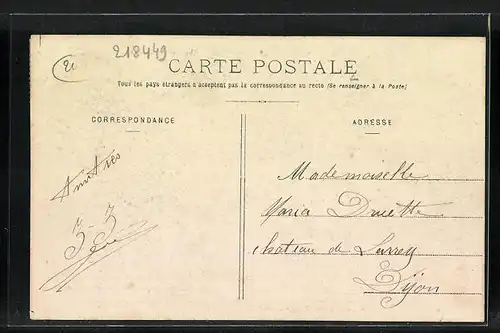 21
218449
CARTE POSTALE
Tous les pays étrangers n'acceptent pas la correspondance au recto (Se renseigner à la Poste)
CORRESPONDANCE
ADRESSE
Amitiés
3-3
Mademoiselle
Maria
château de
Dijon